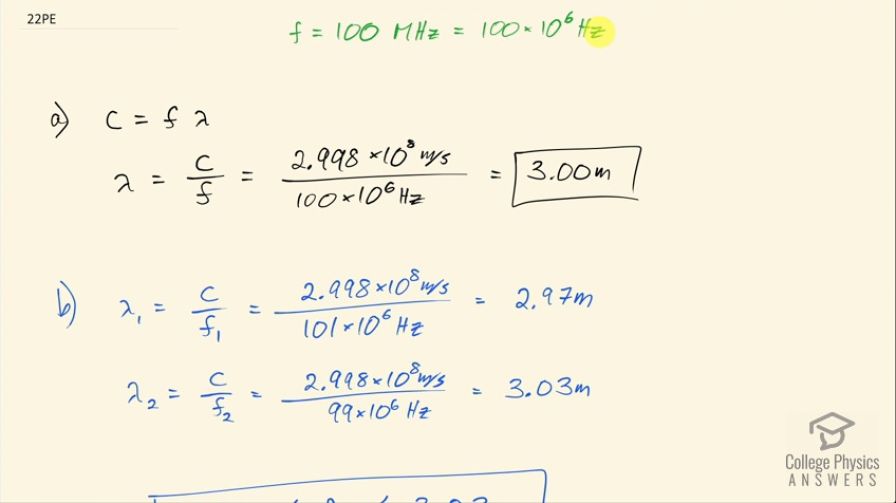 22PE
f = 100 MHz = 100×10⁶ Hz
a) C = f λ
λ = C/f = 2.998×10⁸ m/s / 100×10⁶ Hz = 3.00m
b) λ₁ = C/f₁ = 2.998×10⁸ m/s / 101×10⁶ Hz = 2.97m
λ₂ = C/f₂ = 2.998×10⁸ m/s / 99×10⁶ Hz = 3.03m
College Physics
ANSWERS